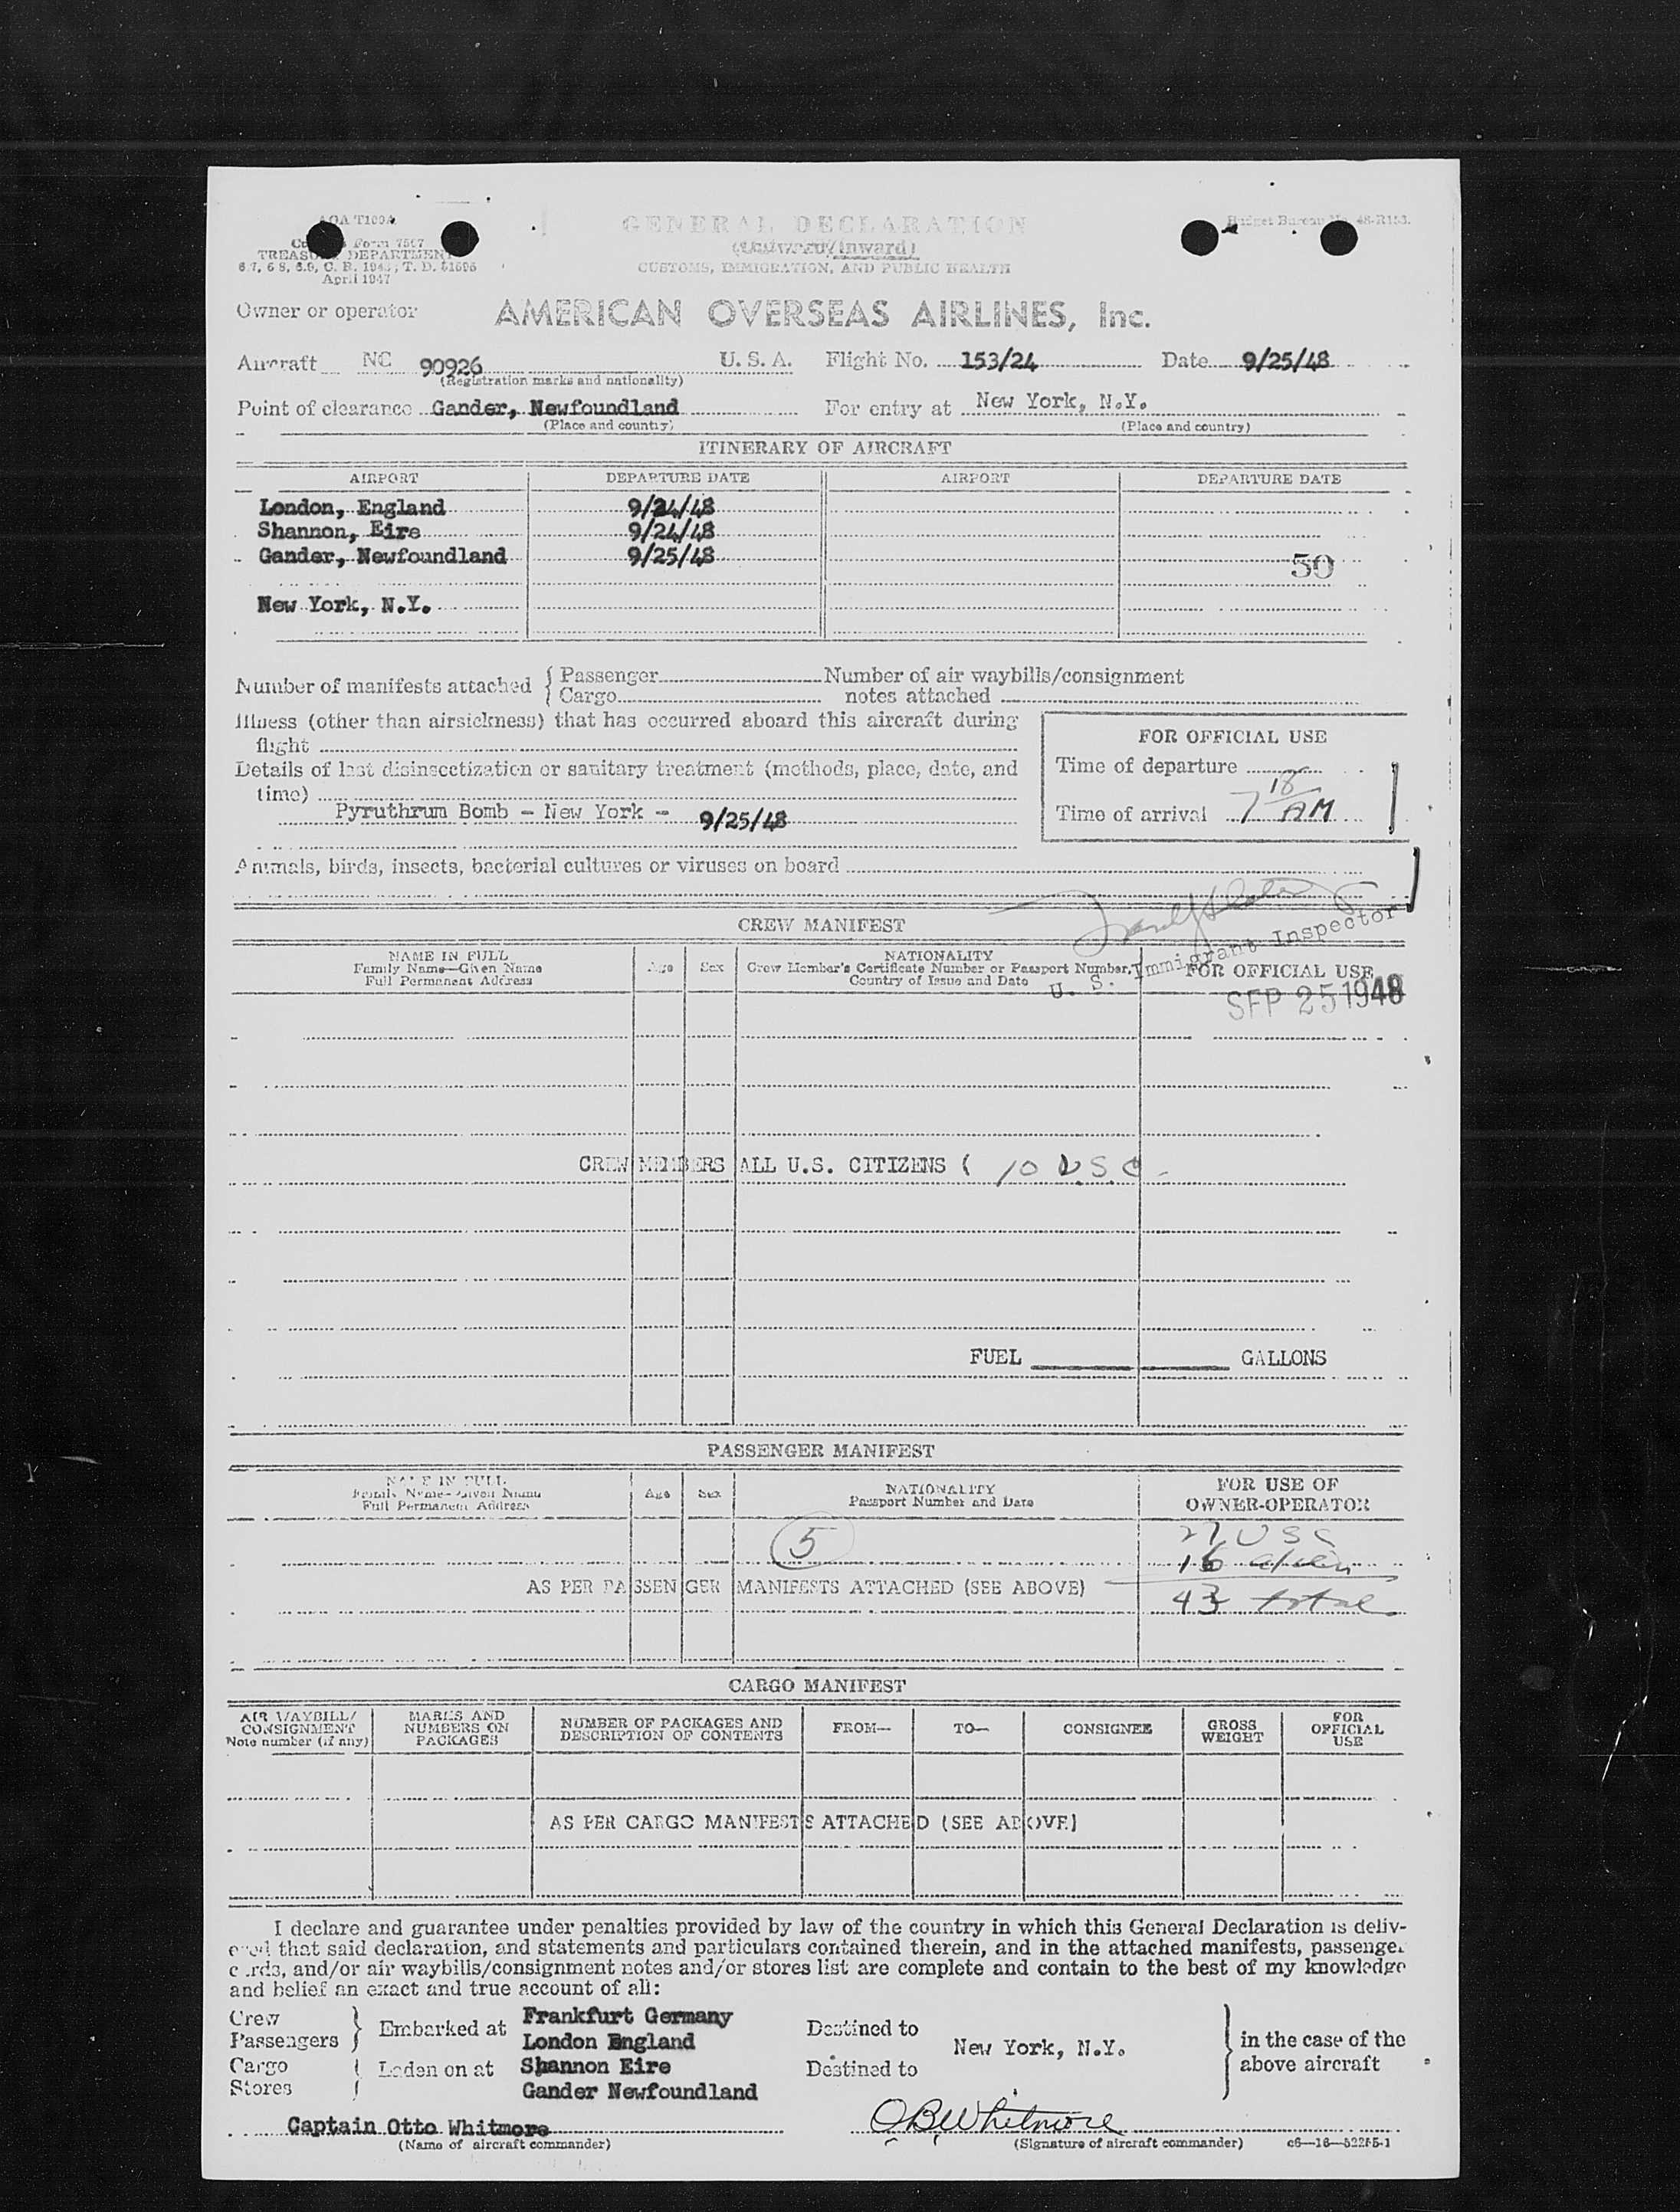 AOA T100A
Customs Form 7507
TREASURY DEPARTMENT
6.7, 6.8, 6.9, C. R. 1943; T. D. 51595
April 1947
GENERAL DECLARATION
(Outward/Inward)
CUSTOMS, IMMIGRATION, AND PUBLIC HEALTH
Budget Bureau No. 48-R153.
Owner or operator AMERICAN OVERSEAS AIRLINES, Inc.
Aircraft NC 90926 U. S. A. Flight No. 153/24 Date 9/25/48
(Registration marks and nationality)
Point of clearance Gander, Newfoundland For entry at New York, N.Y.
(Place and country) (Place and country)
ITINERARY OF AIRCRAFT
AIRPORT DEPARTURE DATE AIRPORT DEPARTURE DATE
London, England 9/24/48
Shannon, Eire 9/24/48
Gander, Newfoundland 9/25/48 50
New York, N.Y.
Number of manifests attached { Passenger Number of air waybills/consignment
Cargo notes attached
Illness (other than airsickness) that has occurred aboard this aircraft during
flight
Details of last disinsectization or sanitary treatment (methods, place, date, and
time)
Pyruthrum Bomb - New York - 9/25/48
FOR OFFICIAL USE
Time of departure
Time of arrival 7 18 AM
Animals, birds, insects, bacterial cultures or viruses on board
CREW MANIFEST
U. S. Immigrant Inspector
NAME IN FULL
Family Name—Given Name
Full Permanent Address
Age Sex
NATIONALITY
Crew Member's Certificate Number or Passport Number,
Country of Issue and Date
FOR OFFICIAL USE
SEP 25 1948
CREW MEMBERS ALL U.S. CITIZENS ( 10 USC
FUEL GALLONS
PASSENGER MANIFEST
NAME IN FULL
Family Name—Given Name
Full Permanent Address
Age Sex
NATIONALITY
Passport Number and Date
FOR USE OF
OWNER-OPERATOR
5 27 USC
16 alien
AS PER PASSENGER MANIFESTS ATTACHED (SEE ABOVE)
43 total
CARGO MANIFEST
AIR WAYBILL/
CONSIGNMENT
Note number (if any)
MARKS AND
NUMBERS ON
PACKAGES
NUMBER OF PACKAGES AND
DESCRIPTION OF CONTENTS
FROM— TO— CONSIGNEE
GROSS
WEIGHT
FOR
OFFICIAL
USE
AS PER CARGO MANIFESTS ATTACHED (SEE ABOVE)
I declare and guarantee under penalties provided by law of the country in which this General Declaration is deliv-
ered that said declaration, and statements and particulars contained therein, and in the attached manifests, passenger
cards, and/or air waybills/consignment notes and/or stores list are complete and contain to the best of my knowledge
and belief an exact and true account of all:
Crew
Passengers } Embarked at
Cargo
Stores } Laden on at
Frankfurt Germany
London England
Shannon Eire
Gander Newfoundland
Destined to
New York, N.Y.
Destined to
in the case of the
above aircraft
Captain Otto Whitmore OBWhitmore
(Name of aircraft commander) (Signature of aircraft commander) c6—16—52255-1